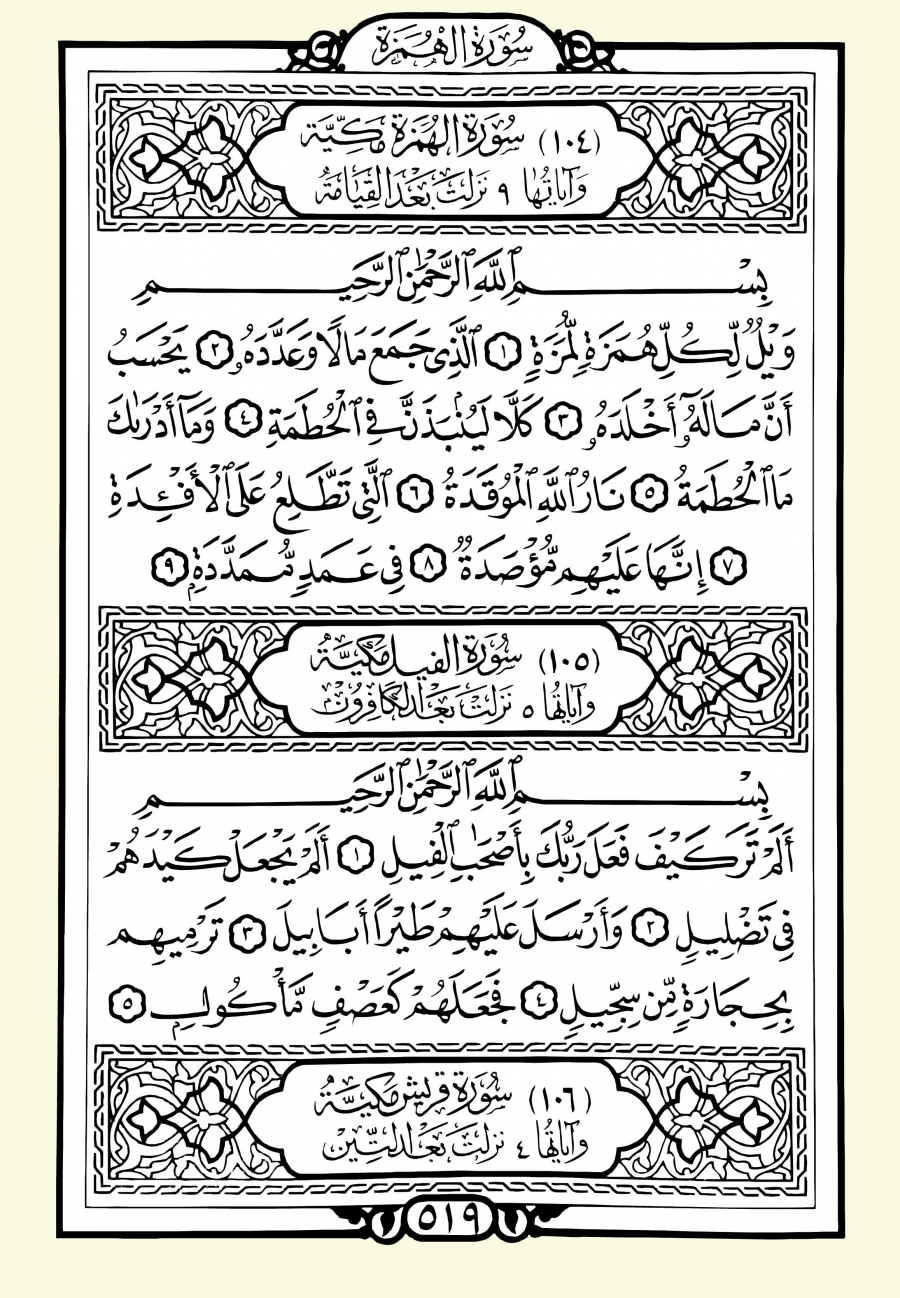 سُورَةُ الْهُمَزَةِ
(١٠٤) سُورَةُ الهُمَزَةِ مَكِّيَّة
وَآيَاتُهَا ٩ نَزَلَتْ بَعْدَ القِيَامَةِ
بِسْمِ ٱللَّهِ ٱلرَّحْمَٰنِ ٱلرَّحِيمِ
وَيْلٌ لِّكُلِّ هُمَزَةٍ لُّمَزَةٍ ١ ٱلَّذِى جَمَعَ مَالًا وَعَدَّدَهُۥ ٢ يَحْسَبُ
أَنَّ مَالَهُۥٓ أَخْلَدَهُۥ ٣ كَلَّا لَيُنۢبَذَنَّ فِى ٱلْحُطَمَةِ ٤ وَمَآ أَدْرَىٰكَ
مَا ٱلْحُطَمَةُ ٥ نَارُ ٱللَّهِ ٱلْمُوقَدَةُ ٦ ٱلَّتِى تَطَّلِعُ عَلَى ٱلْأَفْـِٔدَةِ
٧ إِنَّهَا عَلَيْهِم مُّؤْصَدَةٌ ٨ فِى عَمَدٍ مُّمَدَّدَةٍۭ ٩
(١٠٥) سُورَةُ الفِيلِ مَكِّيَّةٌ
وَآيَاتُهَا ٥ نَزَلَتْ بَعْدَ الكَافِرُونَ
بِسْمِ ٱللَّهِ ٱلرَّحْمَٰنِ ٱلرَّحِيمِ
أَلَمْ تَرَ كَيْفَ فَعَلَ رَبُّكَ بِأَصْحَٰبِ ٱلْفِيلِ ١ أَلَمْ يَجْعَلْ كَيْدَهُمْ
فِى تَضْلِيلٍ ٢ وَأَرْسَلَ عَلَيْهِمْ طَيْرًا أَبَابِيلَ ٣ تَرْمِيهِم
بِحِجَارَةٍ مِّن سِجِّيلٍ ٤ فَجَعَلَهُمْ كَعَصْفٍ مَّأْكُولٍۭ ٥
(١٠٦) سُورَةُ قُرَيْشٍ مَكِّيَّةٌ
وَآيَاتُهَا ٤ نَزَلَتْ بَعْدَ التِّينِ
٥١٩